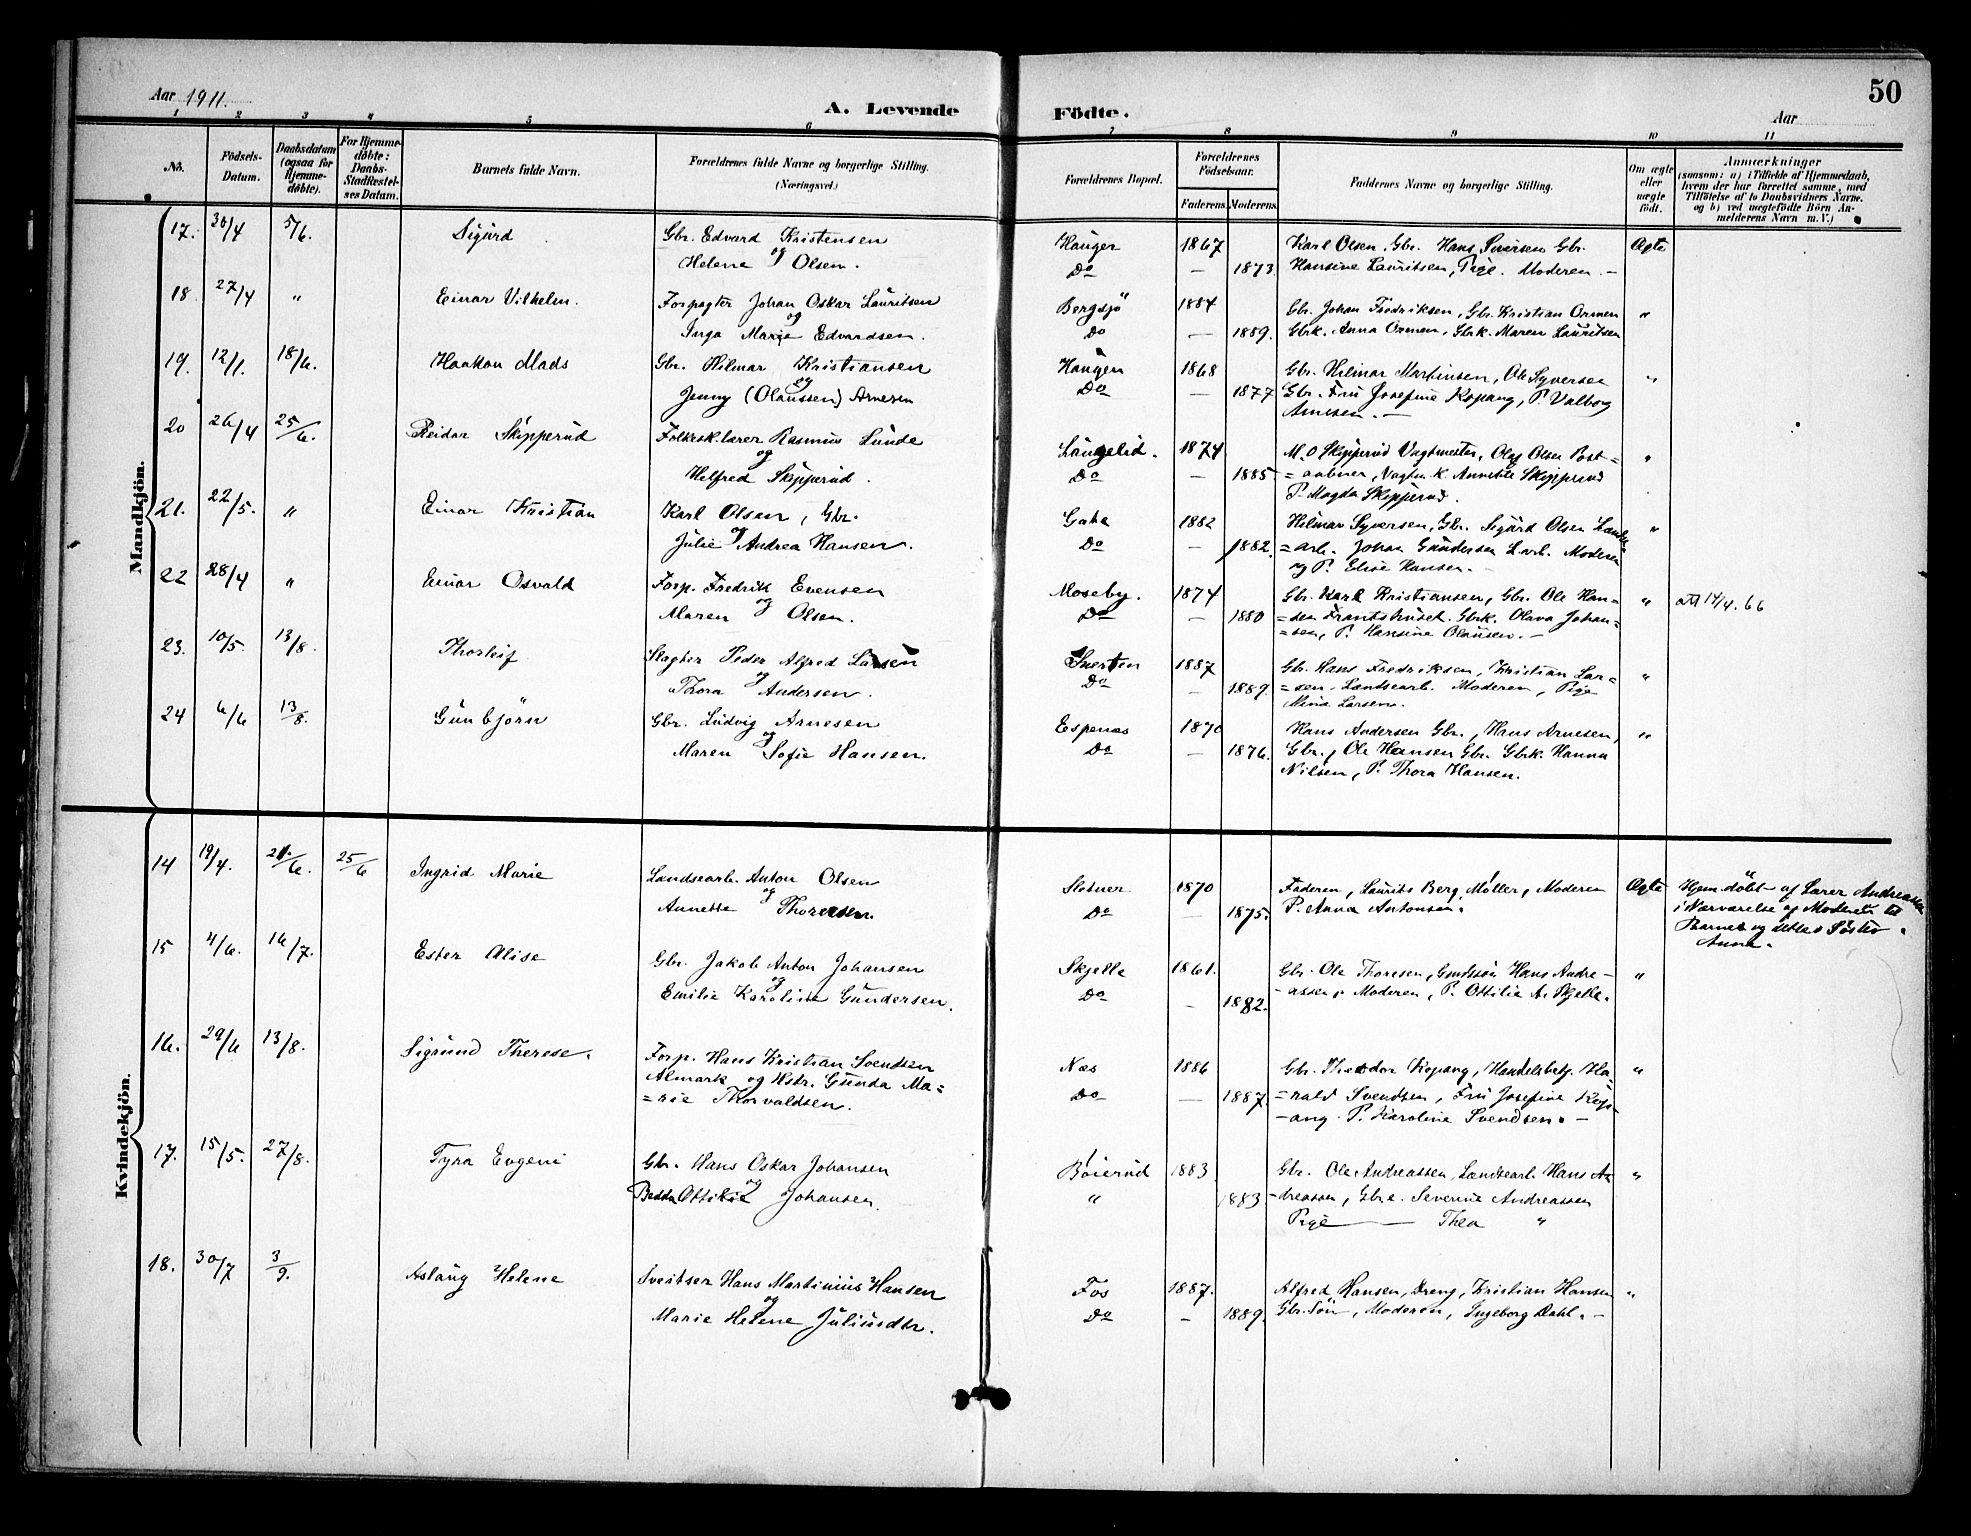 50
Aar 1911.
A. Levende Födte.
Aar
1 2 3 4 5 6 7 8 9 10 11
No.
Födsels-Datum.
Daabsdatum (ogsaa for Hjemme-döbte).
For Hjemme-döbte: Daabs-Stadfæstel-ses Datum.
Barnets fulde Navn.
Forældrenes fulde Navne og borgerlige Stilling.
(Næringsvei.)
Forældrenes Bopæl.
Forældrenes Födselsaar.
Faderens. Moderens.
Faddernes Navne og borgerlige Stilling.
Om ægte eller uægte födt.
Anmærkninger
(saasom: a) i Tilfælde af Hjemmedaab,
hvem der har forrettet samme, med
Tilföielse af to Daabsvidners Navne.
og b) ved uægtefödte Börn An-
melderens Navn m. V.)
Mandkjön.
17. 30/4 5/6. Sigurd Gbr. Edvard Kristensen Hauger 1867 Karl Olsen, Gbr. Hans Sversen Gbr. Ægte
og Helene Olsen. Do — 1873. Hansine Lauritsen, Pige. Moderen. —
18. 27/4 " Einar Vilhelm. Forpagter Johan Oskar Lauritsen Bergsjö 1884 Gbr. Johan Fredriksen, Gbr. Kristian Ormen "
og Inga Marie Edvardsen. Do — 1889. Gbrk. Anna Ormen, Gbrk. Maren Lauritsen
19. 12/1. 18/6. Haakon Mads Gbr. Hilmar Kristiansen Haugen 1868 Gbr. Hilmar Martinsen, Ole Syversen "
og Jenny (Olaussen) Arnesen Do — 1877 Gbr. Fru Josefine Kopang, P. Valborg
Arnesen. —
20 26/4 25/6. Reidar Skipperud Folkesk.lærer Rasmus Lunde Langelid. 1874. M. O Skipperud Vagtmester, Olaf Olsen Post= "
og Helfred Skipperud. Do — 1885. =aabner, Vagtm. k. Annette Skipperud
P. Magda Skipperud.
21. 22/5. " Einar Kristian Karl Olsen, Gbr. Gaha 1882 Hilmar Syversen, Gbr. Sigurd Olsen Lands= "
og Julie Andrea Hansen. Do — 1882. =arb. Johan Gundersen L.arb. Moderen
og P. Elise Hansen. —
22 28/4 " Einar Osvald Forp. Fredrik Evensen Moseby. 1874 Gbr. Karl Kristiansen, Gbr. Ole Han= " att 14/4. 66
og Maren Olsen. Do — 1880 =sen Frantshuset. Gbrk. Olava Johan=
=sen, P. Hansine Olausen. —
23. 10/5 13/8. Thorleif Slagter Peder Alfred Larsen Snerten 1887 Gbr. Hans Fredriksen, Kristian Lar= "
og Thora Andersen. Do — 1889. =sen. Landsearb. Moderen, Pige
Mina Larsen.
24 6/6 13/8. Gunbjörn Gbr. Ludvig Arnesen Espenæs 1870 Hans Andersen Gbr., Hans Arnesen, "
og Maren Sofie Hansen. Do — 1876. Gbr., Ole Hansen Gbr. Gbrk. Hanna
Nilsen, P. Thora Hansen.
Kvindekjön.
14 19/4. 21/6. 25/6 Ingrid Marie Landsearb. Anton Olsen Slotner 1870 Faderen, Laurits Berg, Møller, Moderen Ægte Hjem.döbt af Lærer Andreassen
og Annette Thoresen. Do — 1875. P. Anna Antonsen. i Nærværelse af Moderen til
Barnet og dettes Søster
Anna.
15 4/6. 16/7. Ester Alise Gbr. Jakob Anton Johansen Skjelle 1861. Gbr. Ole Thoresen, Hans Andre— "
og Emilie Karoline Gundersen. Do — 1882. —assen, Moderen, P. Ottilie A. Skjelle.
16. 29/6 13/8. Sigrund Therese. Forp. Hans Kristian Svendsen Næs 1886 Gbr. Theodor Kopang, Handelsbetj. Ha= "
Almark og Hstr. Gunda Ma= Do — 1887. =rald Svendsen, Fru Josefine Kop-
=rie Thorvaldsen. —ang. P. Karoline Svendsen. —
17. 15/5. 27/8. Tyra Evgeni Gbr. Hans Oskar Johansen Böierud 1883 Gbr. Ole Andreassen, Landsearb. Hans An "
og Ottilie Johansen. " 1883 —dreassen, Gbr. Severine Andreassen
Pige — Thea "
18. 30/7 3/9. Aslaug Helene Sveitser Hans Martinius Hansen Fos 1887. Alfred Hansen, Dreng, Kristian Hansen "
og Marie Helene Juliusdtr. Do — 1889. Gbr.Sön, Moderen, Ingeborg Dahl. —